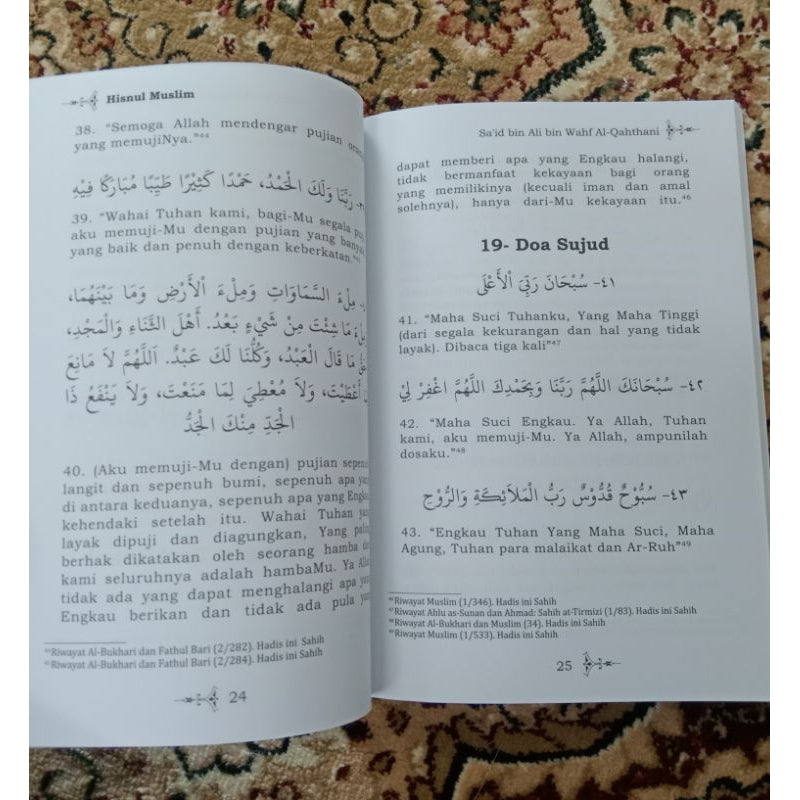 Hisnul Muslim
38. "Semoga Allah mendengar pujian
yang memujiNya."⁴⁴
رَبَّنَا وَلَكَ الْحَمْدُ، حَمْدًا كَثِيْرًا طَيِّبًا مُبَارَكًا فِيْهِ
39. "Wahai Tuhan kami, bagi-Mu segala
aku memuji-Mu dengan pujian yang
yang baik dan penuh dengan keberkatan."⁴⁵
مِلْءَ السَّمَاوَاتِ وَمِلْءَ اْلأَرْضِ وَمَا بَيْنَهُمَا،
مَا شِئْتَ مِنْ شَيْءٍ بَعْدُ. أَهْلَ الثَّنَاءِ وَالْمَجْدِ،
مَا قَالَ الْعَبْدُ، وَكُلُّنَا لَكَ عَبْدٌ. اَللَّهُمَّ لاَ مَانِعَ
أَعْطَيْتَ، وَلاَ مُعْطِيَ لِمَا مَنَعْتَ، وَلاَ يَنْفَعُ ذَا
الْجَدِّ مِنْكَ الْجَدُّ
40. (Aku memuji-Mu dengan) pujian
langit dan sepenuh bumi, sepenuh apa
di antara keduanya, sepenuh apa yang
kehendaki setelah itu. Wahai Tuhan
layak dipuji dan diagungkan, Yang
berhak dikatakan oleh seorang hamba
kami seluruhnya adalah hambaMu. Ya
tidak ada yang dapat menghalangi apa
Engkau berikan dan tidak ada pula
⁴⁴Riwayat Al-Bukhari dan Fathul Bari (2/282). Hadis ini Sahih
⁴⁵Riwayat Al-Bukhari dan Fathul Bari (2/284). Hadis ini Sahih
24
Sa'id bin Ali bin Wahf Al-Qahthani
dapat memberi apa yang Engkau halangi,
tidak bermanfaat kekayaan bagi orang
yang memilikinya (kecuali iman dan amal
solehnya), hanya dari-Mu kekayaan itu."⁴⁶
19- Doa Sujud
٤١- سُبْحَانَ رَبِّيَ اْلأَعْلَى
41. "Maha Suci Tuhanku, Yang Maha Tinggi
(dari segala kekurangan dan hal yang tidak
layak). Dibaca tiga kali"⁴⁷
٤٢- سُبْحَانَكَ اللَّهُمَّ رَبَّنَا وَبِحَمْدِكَ اللَّهُمَّ اغْفِرْ لِيْ
42. "Maha Suci Engkau. Ya Allah, Tuhan
kami, aku memuji-Mu. Ya Allah, ampunilah
dosaku."⁴⁸
٤٣- سُبُّوْحٌ قُدُّوْسٌ رَبُّ الْمَلاَئِكَةِ وَالرُّوْحِ
43. "Engkau Tuhan Yang Maha Suci, Maha
Agung, Tuhan para malaikat dan Ar-Ruh"⁴⁹
⁴⁶Riwayat Muslim (1/346). Hadis ini Sahih
⁴⁷Riwayat Ahlu as-Sunan dan Ahmad: Sahih at-Tirmizi (1/83). Hadis ini Sahih
⁴⁸Riwayat Al-Bukhari dan Muslim (34). Hadis ini Sahih
⁴⁹Riwayat Muslim (1/533). Hadis ini Sahih
25